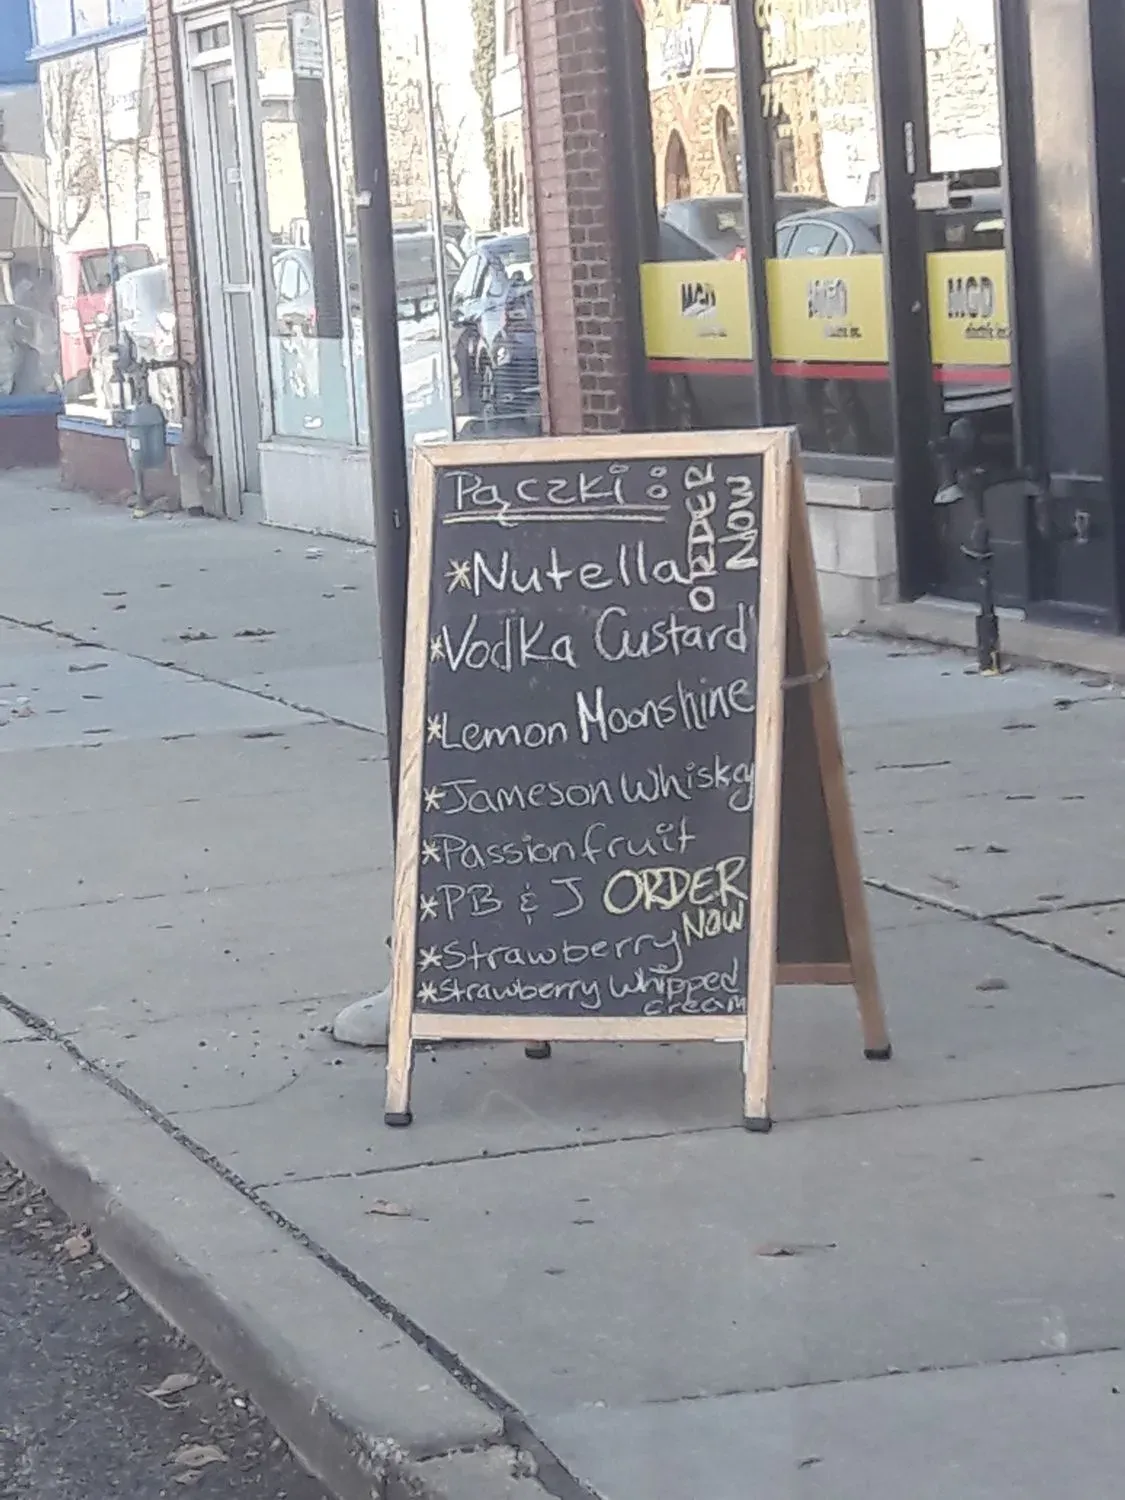 Pączki:
ORDER
NOW
*Nutella
*Vodka Custard
*Lemon Moonshine
*Jameson Whiskey
*Passionfruit
*PB & J
ORDER
NOW
*Strawberry
*Strawberry Whipped
cream
MGD
MGD
MGD
electric inc.